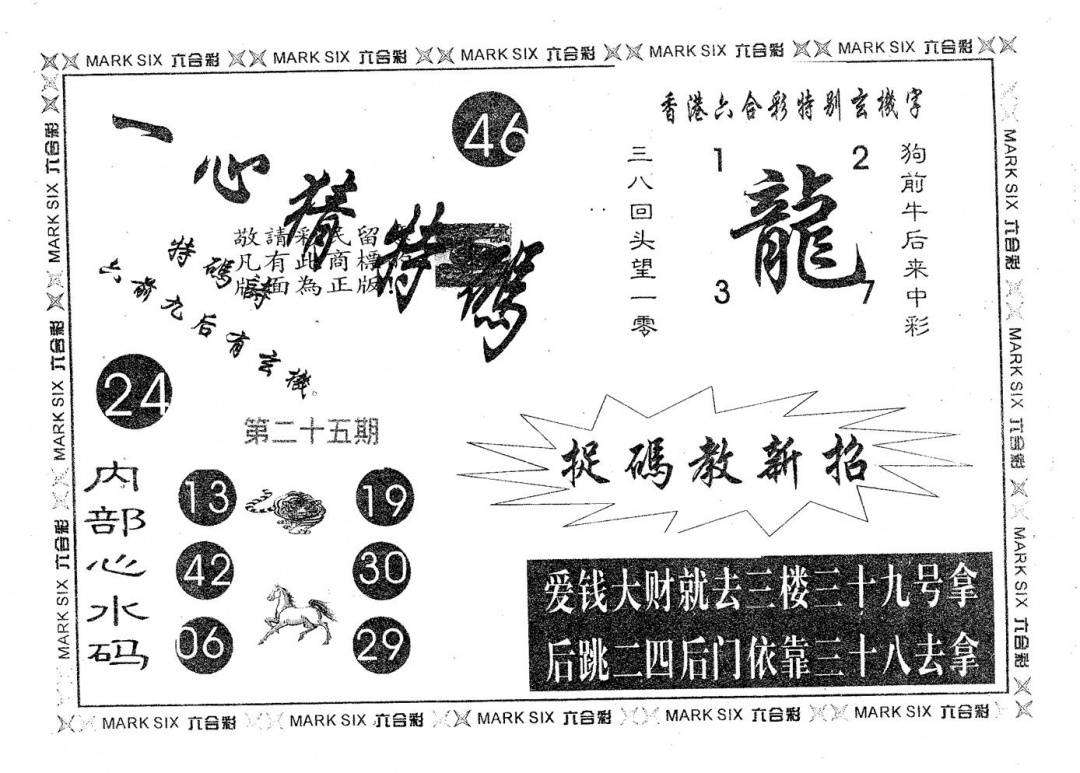 MARK SIX 六合彩 MARK SIX 六合彩 MARK SIX 六合彩 MARK SIX 六合彩 MARK SIX 六合彩
一心猜特碼
46
敬請彩民留
凡有此商標
版面為正版!
特碼詩
六前九后有玄機。
24
第二十五期
内部心水码
13 19
42 30
06 29
香港六合彩特别玄機字
三八回头望一零
1 2
龍
3 7
狗前牛后来中彩
捉碼教新招
爱钱大财就去三楼三十九号拿
后跳二四后门依靠三十八去拿
MARK SIX 六合彩 MARK SIX 六合彩 MARK SIX 六合彩
MARK SIX 六合彩 MARK SIX 六合彩 MARK SIX 六合彩
MARK SIX 六合彩 MARK SIX 六合彩 MARK SIX 六合彩 MARK SIX 六合彩 MARK SIX 六合彩